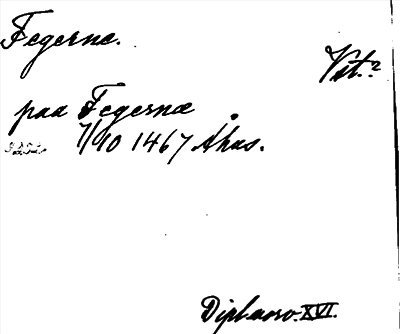 Fegernæ.
Vit.?
paa Fegernæ
7/10 1467 Åhus.
Diplnorv. XVI.